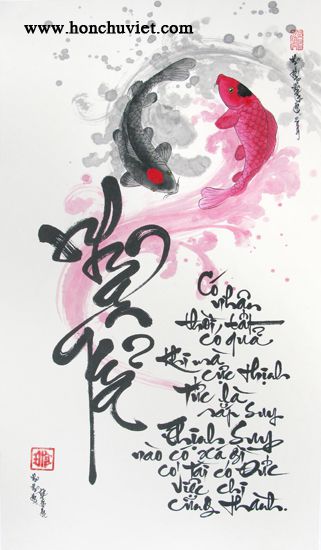 www.honchuviet.com
Nhân
Quả
Có
nhân
thời, tất
có quả
Khi mà
cực thịnh
Tức là
sắp suy
Thịnh Suy
nào có xa gì
có Tài có Đức
việc chi
cũng thành.